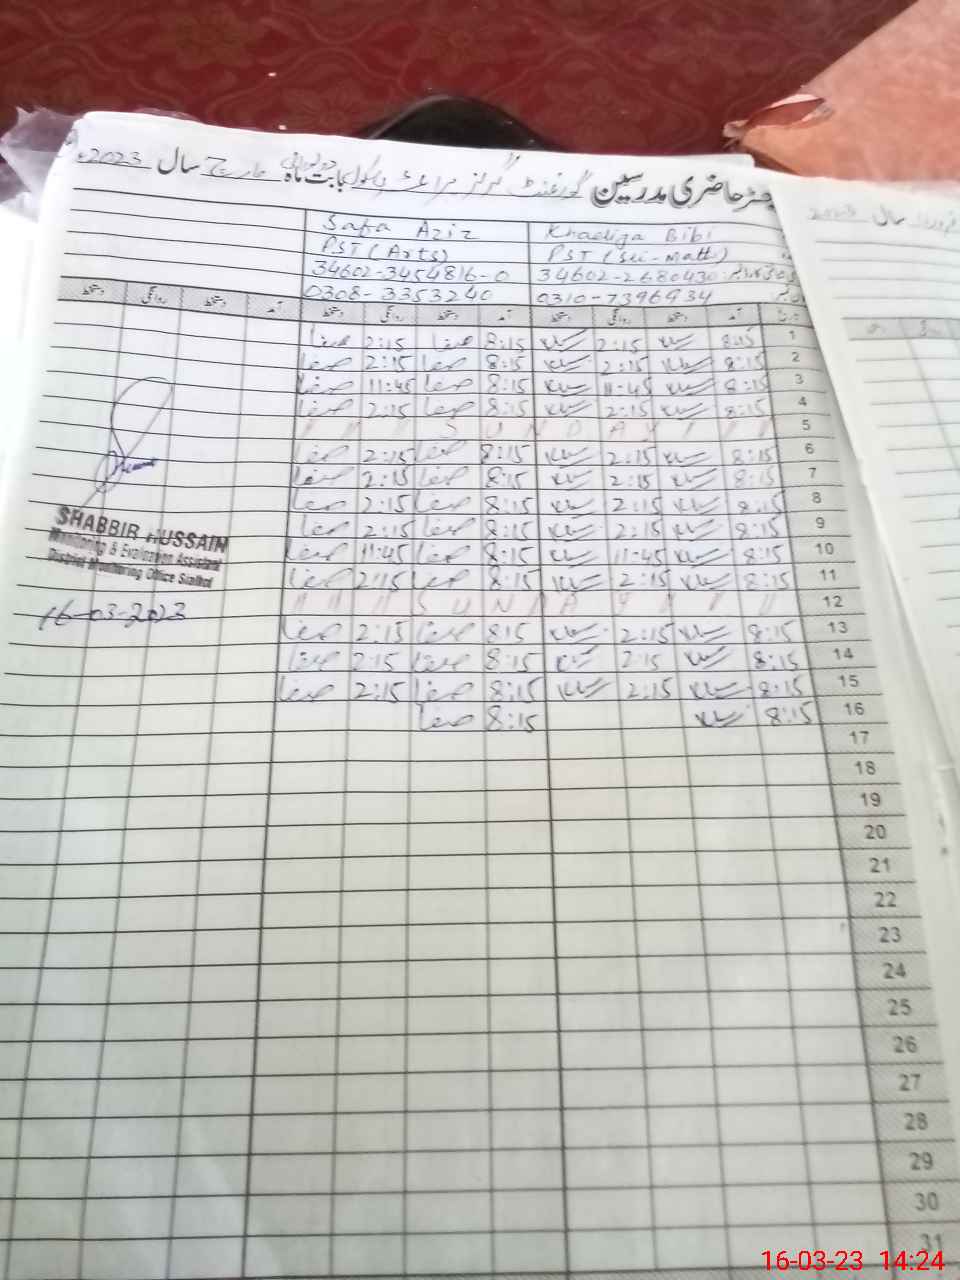 رجسٹر حاضری مدرسین گورنمنٹ گرلز پرائمری سکول بابت ماہ مارچ سال 2023ء
Safa Aziz Khadija Bibi
PST (Arts) PST (Sci-Math)
34602-3454816-0 34602-2680430
0308-3353240 0310-7396934
دستخط روانگی دستخط آمد دستخط روانگی دستخط آمد دستخط روانگی دستخط آمد تاریخ
صفا 2:15 صفا 8:15 2:15 8:15 1
صفا 2:15 صفا 8:15 2:15 8:15 2
صفا 11:45 صفا 8:15 11:45 8:15 3
صفا 2:15 صفا 8:15 2:15 8:15 4
SUNDAY 5
صفا 2:15 صفا 8:15 2:15 8:15 6
صفا 2:15 صفا 8:15 2:15 8:15 7
صفا 2:15 صفا 8:15 2:15 8:15 8
صفا 2:15 صفا 8:15 2:15 8:15 9
صفا 11:45 صفا 8:15 11:45 8:15 10
صفا 2:15 صفا 8:15 2:15 8:15 11
SUNDAY 12
صفا 2:15 صفا 8:15 2:15 8:15 13
صفا 2:15 صفا 8:15 2:15 8:15 14
صفا 2:15 صفا 8:15 2:15 8:15 15
صفا 8:15 8:15 16
17
18
19
20
21
22
23
24
25
26
27
28
29
30
31
SHABBIR HUSSAIN
Monitoring & Evaluation Assistant
District Monitoring Office Sialkot
16-03-2023
سال
16-03-23 14:24